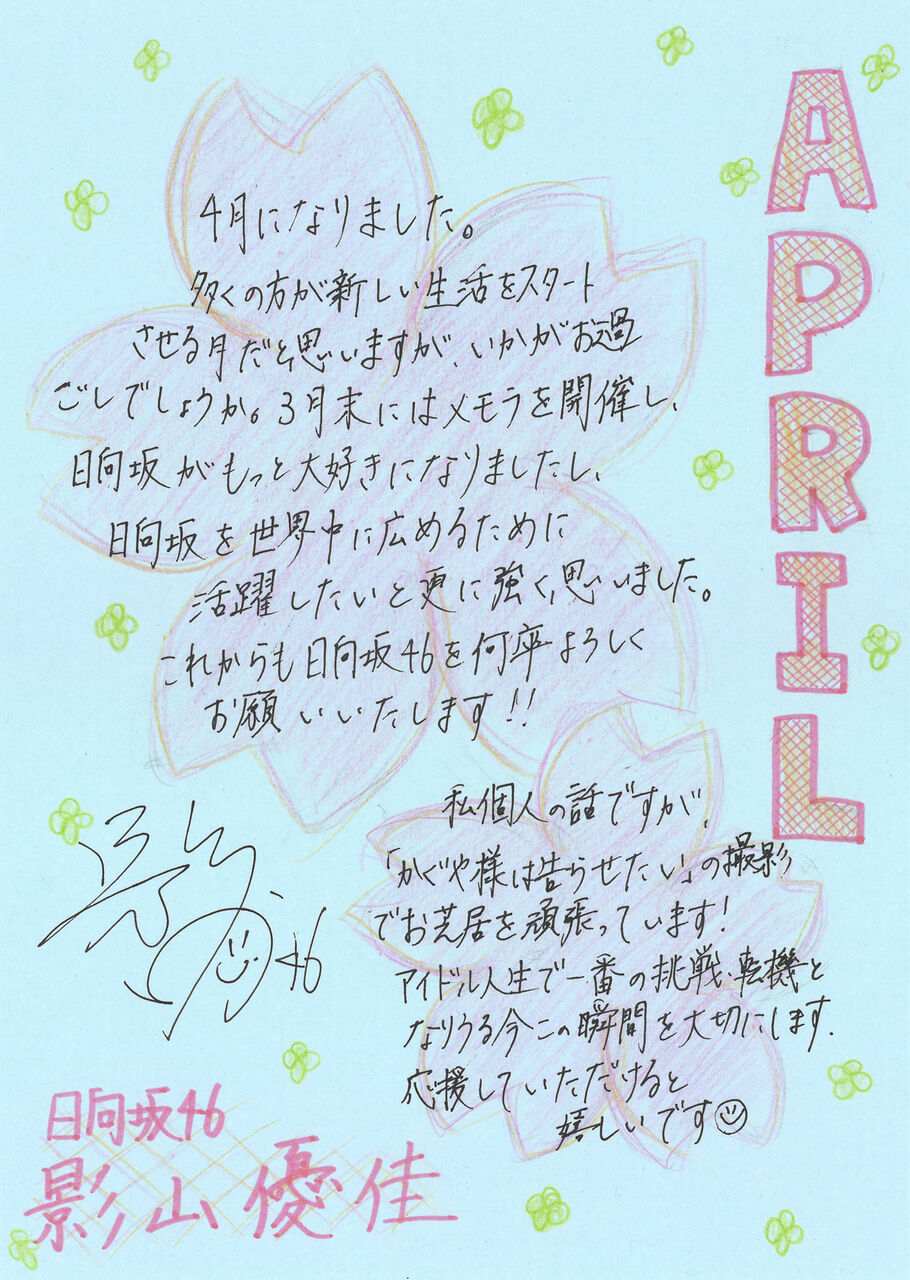 APRIL
4月になりました。
多くの方が新しい生活をスタート
させる月だと思いますが、いかがお過
ごしでしょうか。3月末にはメモラを開催し、
日向坂がもっと大好きになりましたし、
日向坂を世界中に広めるために
活躍したいと更に強く思いました。
これからも日向坂46を何卒よろしく
お願いいたします!!
私個人の話ですが、
「かぐや様は告らせたい」の撮影
でお芝居を頑張っています!
アイドル人生で一番の挑戦、転機と
なりうる今この瞬間を大切にします.
応援していただけると
嬉しいです
46
日向坂46
影山優佳